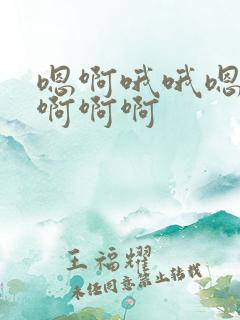 嗯啊哦哦嗯
啊啊啊
王福耀
未经同意禁止转载